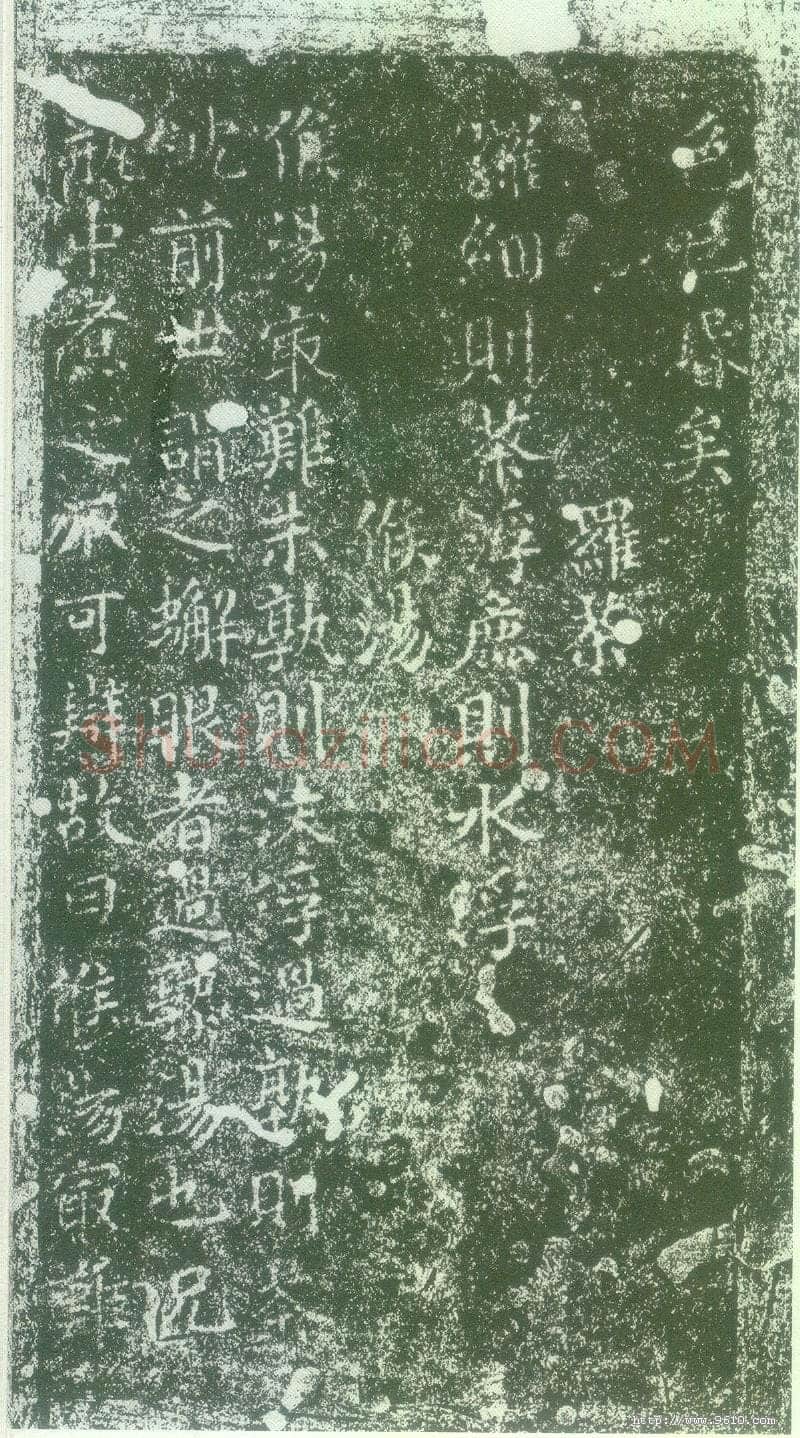 色已昏矣
羅茶
羅細則茶浮麄則水浮
候湯
候湯㝡難未孰則沫浮過熟則茶
沉前世謂之蠏眼者過孰湯也況
瓶中煮之不可辯故曰候湯㝡難
Shufaziliao.COM
http://www.9610.com